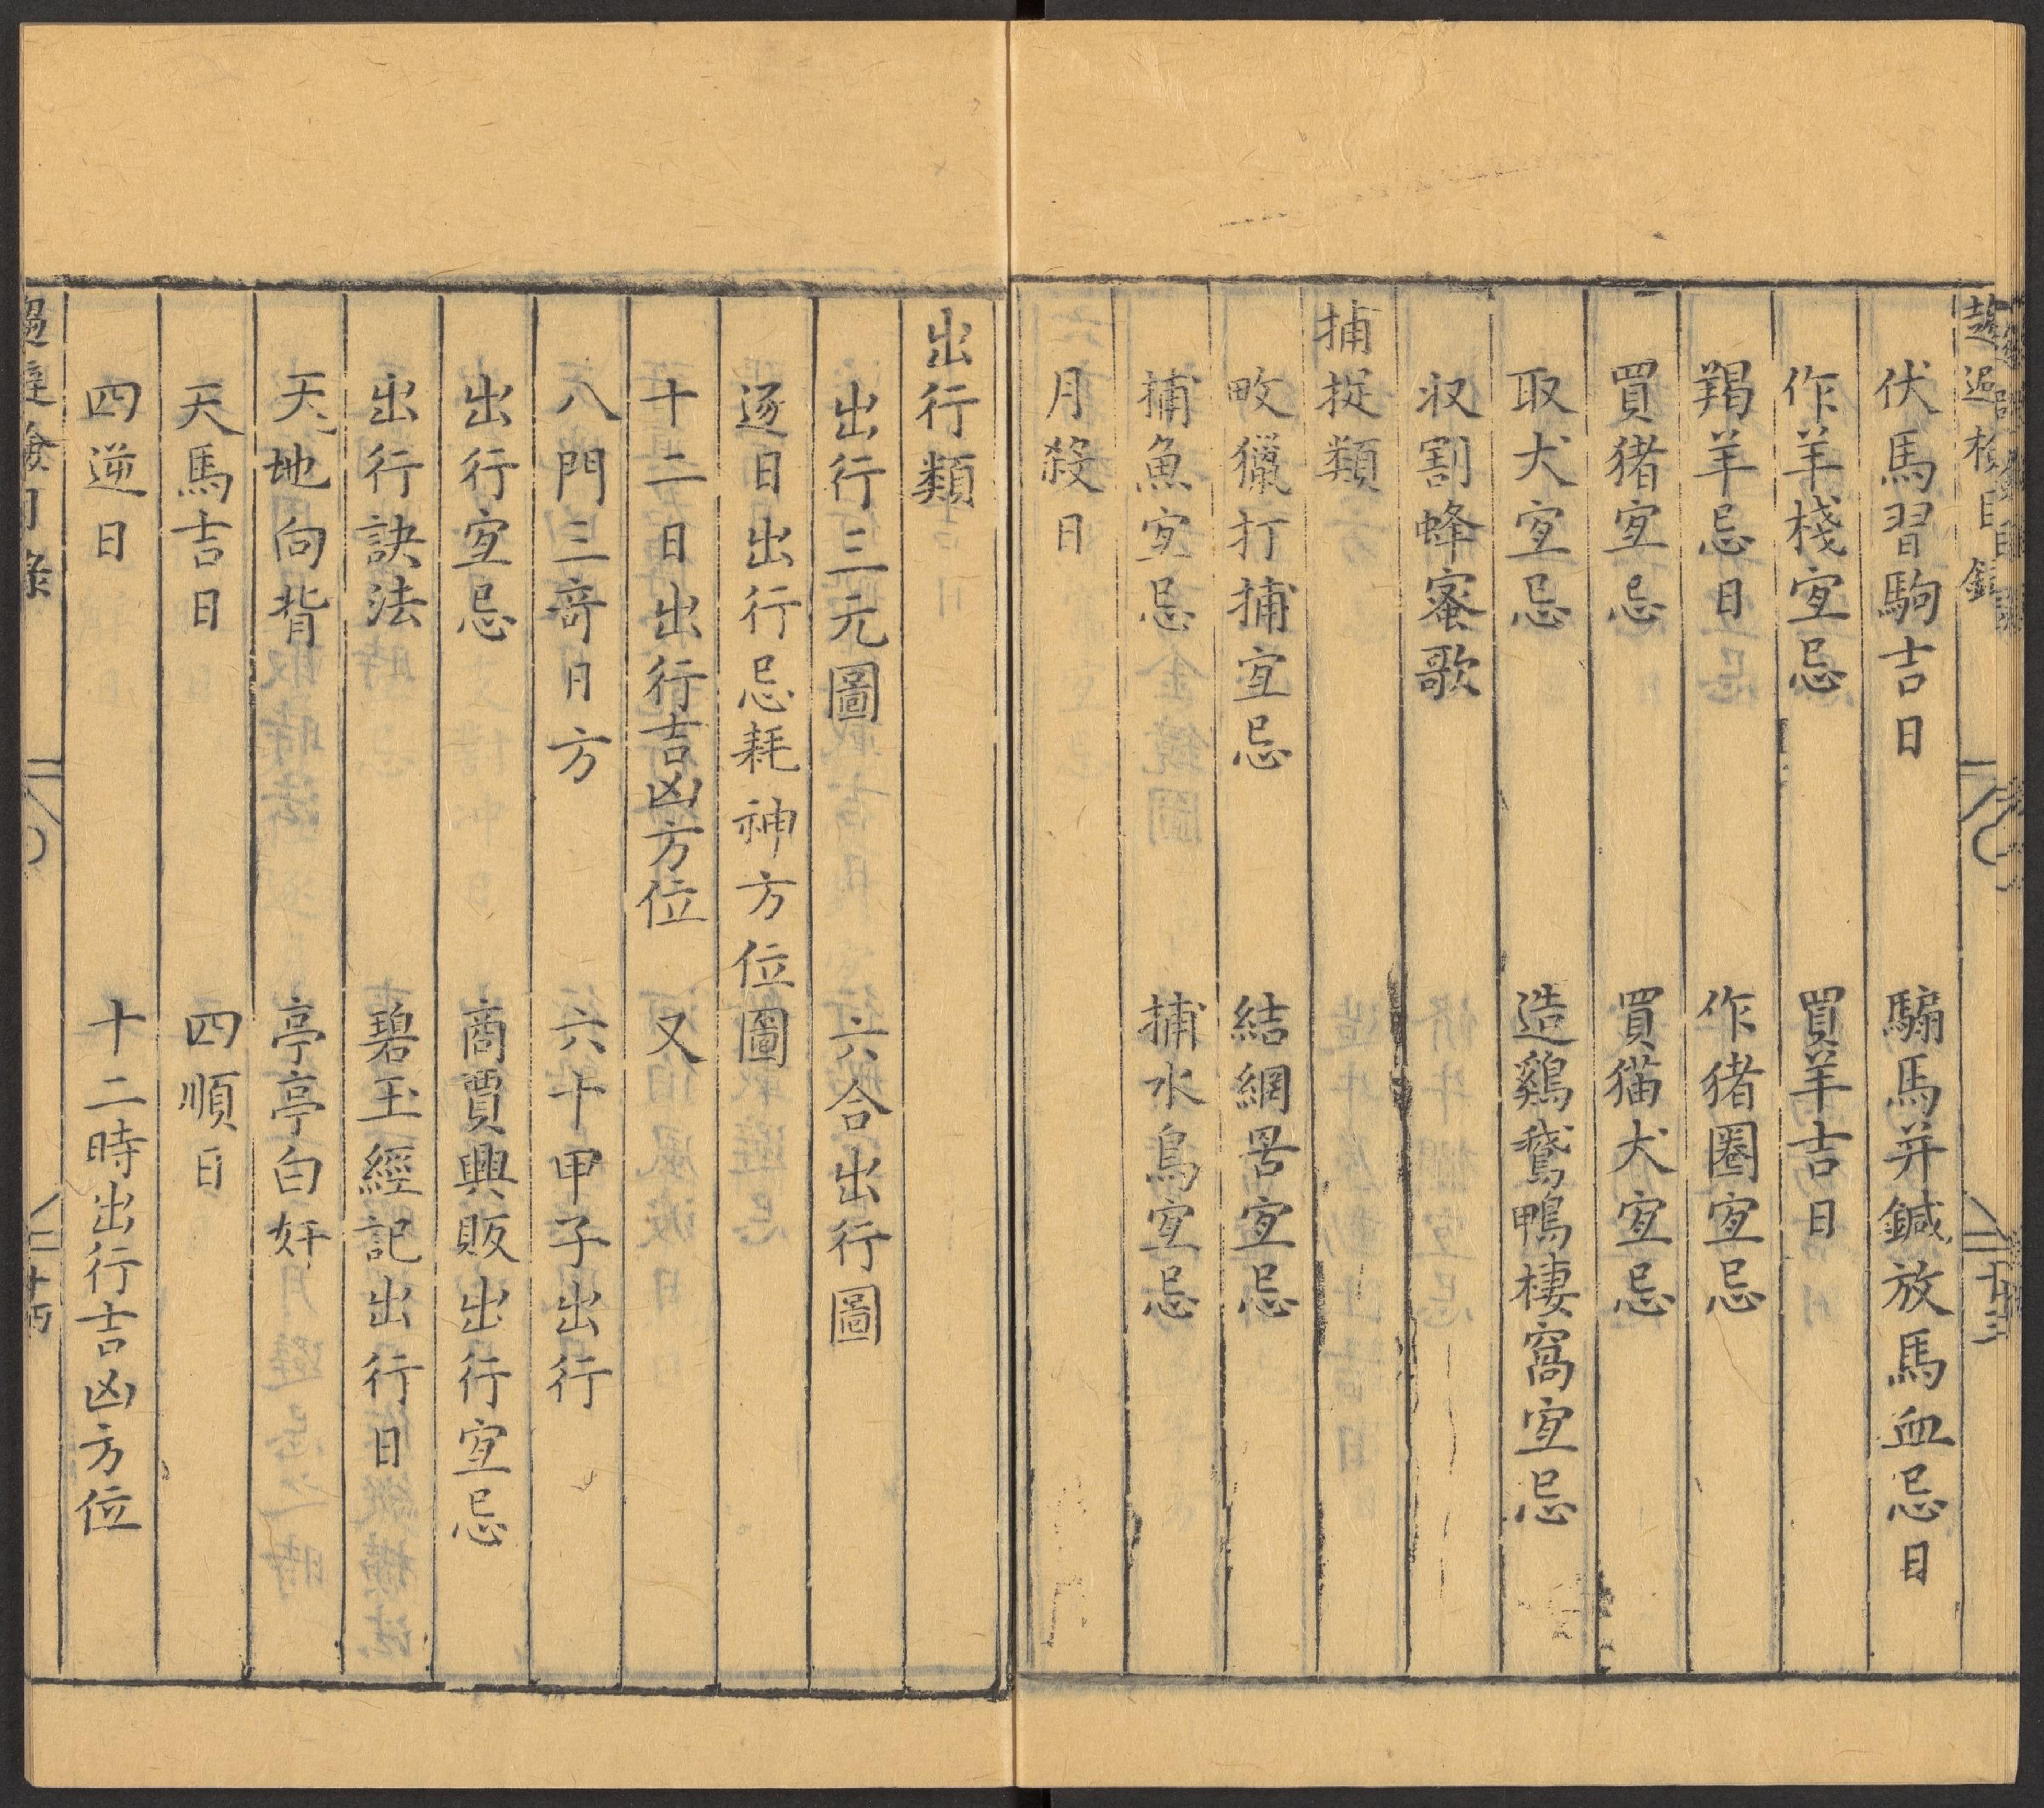 伏馬習駒吉日　騸馬并鍼放馬血忌日
作羊棧宐忌　買羊吉日
羯羊忌日　作猪圈宐忌
買猪宐忌　買猫犬宐忌
取犬宐忌　造鷄鵞鴨棲窩宐忌
収割蜂蜜歌
捕捉類
畋獵打捕宐忌　結網罟宐忌
捕魚宐忌　捕水鳥宐忌
月殺日
出行類
出行三元圖　六合出行圖
逐日出行忌耗神方位圖
十二日出行吉凶方位　又
八門三竒日方　六十甲子出行
出行宐忌　商賈興販出行宐忌
出行訣法　碧玉經記出行日
天地向背　亭亭白奸
天馬吉日　四順日
四逆日　十二時出行吉凶方位